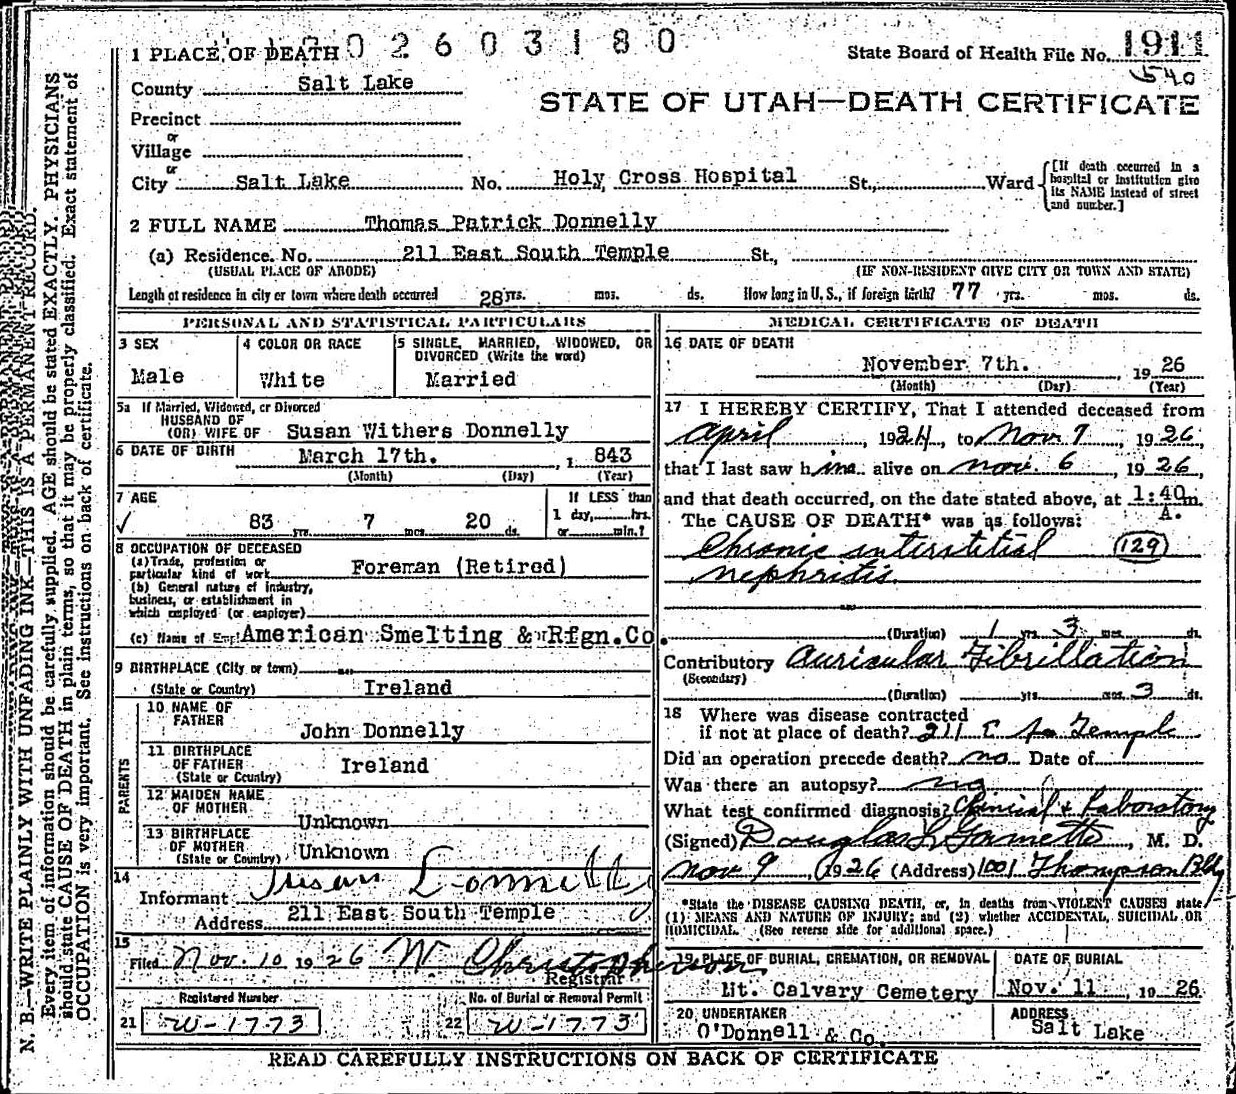 1 PLACE OF DEATH 02603180
State Board of Health File No. 1911
540
County Salt Lake
STATE OF UTAH—DEATH CERTIFICATE
Precinct
or
Village
or
City Salt Lake No. Holy Cross Hospital St., Ward
[If death occurred in a hospital or institution give its NAME instead of street and number.]
2 FULL NAME Thomas Patrick Donnelly
(a) Residence. No. 211 East South Temple St.,
(USUAL PLACE OF ABODE) (IF NON-RESIDENT GIVE CITY OR TOWN AND STATE)
Length of residence in city or town where death occurred 28 yrs. mos. ds. How long in U. S., if foreign birth? 77 yrs. mos. ds.
PERSONAL AND STATISTICAL PARTICULARS
3 SEX
Male
4 COLOR OR RACE
White
5 SINGLE, MARRIED, WIDOWED, OR
DIVORCED (Write the word)
Married
5a If Married, Widowed, or Divorced
HUSBAND OF
(OR) WIFE OF Susan Withers Donnelly
6 DATE OF BIRTH March 17th. , 1 843
(Month) (Day) (Year)
7 AGE
83 yrs. 7 mos. 20 ds.
If LESS than
1 day, hrs.
or min.?
8 OCCUPATION OF DECEASED
(a) Trade, profession or
particular kind of work Foreman (Retired)
(b) General nature of industry,
business, or establishment in
which employed (or employer)
(c) Name of American Smelting & Rfgn.Co.
9 BIRTHPLACE (City or town)
(State or Country) Ireland
PARENTS
10 NAME OF
FATHER John Donnelly
11 BIRTHPLACE
OF FATHER Ireland
(State or Country)
12 MAIDEN NAME
OF MOTHER Unknown
13 BIRTHPLACE
OF MOTHER Unknown
(State or Country)
14
Informant Susan Donnelly
Address 211 East South Temple
15
Filed Nov. 10 1926 W Christopherson
Registrar
Registered Number
21 W-1773
No. of Burial or Removal Permit
22 W-1773
MEDICAL CERTIFICATE OF DEATH
16 DATE OF DEATH
November 7th. , 19 26
(Month) (Day) (Year)
17 I HEREBY CERTIFY, That I attended deceased from
April , 1924, to Nov 7 , 1926,
that I last saw him alive on Nov. 6 , 1926,
and that death occurred, on the date stated above, at 1:40 m.
A.
The CAUSE OF DEATH* was as follows:
Chronic interstitial 129
nephritis
(Duration) 1 yrs. 3 mos. ds.
Contributory Auricular Fibrillation
(Secondary)
(Duration) yrs. mos. 3 ds.
18 Where was disease contracted
if not at place of death? 211 E So Temple
Did an operation precede death? no Date of
Was there an autopsy? no
What test confirmed diagnosis? Clinical & Laboratory
(Signed) Douglas , M. D.
Nov 9 , 1926 (Address) 1001 Thompson Bldg
*State the DISEASE CAUSING DEATH, or, in deaths from VIOLENT CAUSES state
(1) MEANS AND NATURE OF INJURY; and (2) whether ACCIDENTAL, SUICIDAL OR
HOMICIDAL. (See reverse side for additional space.)
19 PLACE OF BURIAL, CREMATION, OR REMOVAL
Mt. Calvary Cemetery
DATE OF BURIAL
Nov. 11 , 19 26
20 UNDERTAKER
O'Donnell & Co.
ADDRESS
Salt Lake
READ CAREFULLY INSTRUCTIONS ON BACK OF CERTIFICATE
N. B.—WRITE PLAINLY WITH UNFADING INK—THIS IS A PERMANENT RECORD.
Every item of information should be carefully supplied. AGE should be stated EXACTLY. PHYSICIANS
should state CAUSE OF DEATH in plain terms, so that it may be properly classified. Exact statement of
OCCUPATION is very important. See instructions on back of certificate.